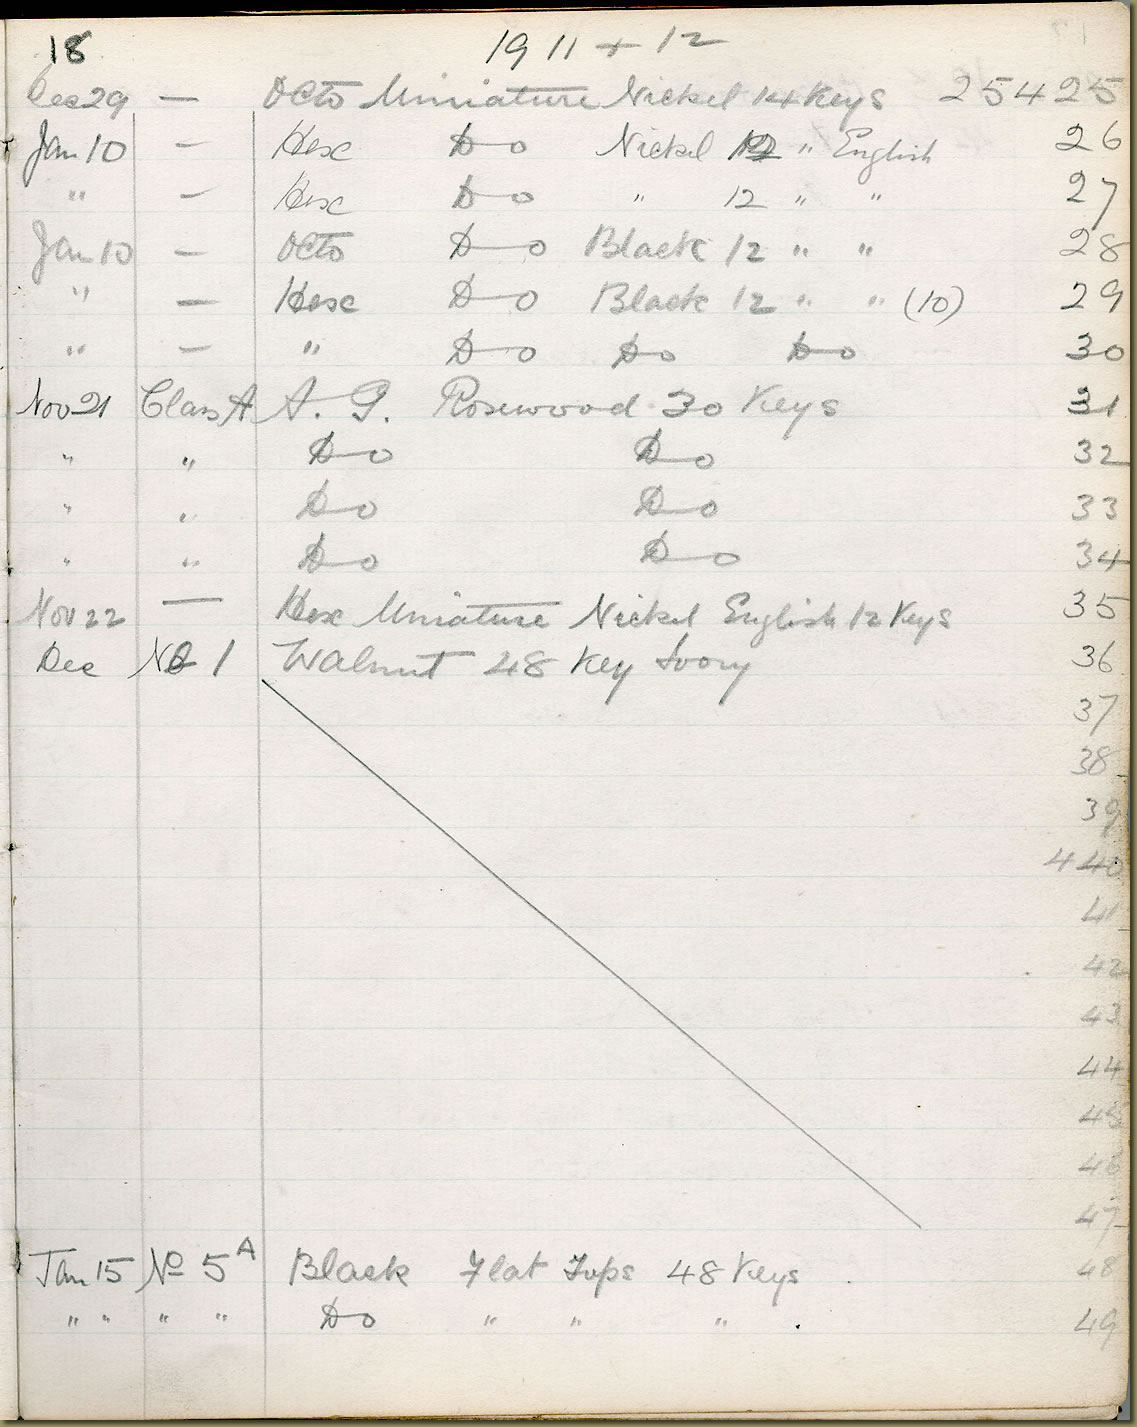 18 1911 + 12
Dec 29 — Octo Miniature Nickel 14 Keys 25425
Jan 10 — Hex Do Nickel 12 " English 26
" — Hex Do " 12 " " 27
Jan 10 — Octo Do Black 12 " " 28
" — Hex Do Black 12 " " (10) 29
" — " Do Do Do 30
Nov 21 Class A A. G. Rosewood 30 Keys 31
" " Do Do 32
" " Do Do 33
" " Do Do 34
Nov 22 — Hex Miniature Nickel English 12 Keys 35
Dec No 1 Walnut 48 Key Ivory 36
37
38
39
440
41
42
43
44
45
46
47
Jan 15 No 5A Black Flat Tops 48 Keys 48
" " " " Do " " " 49